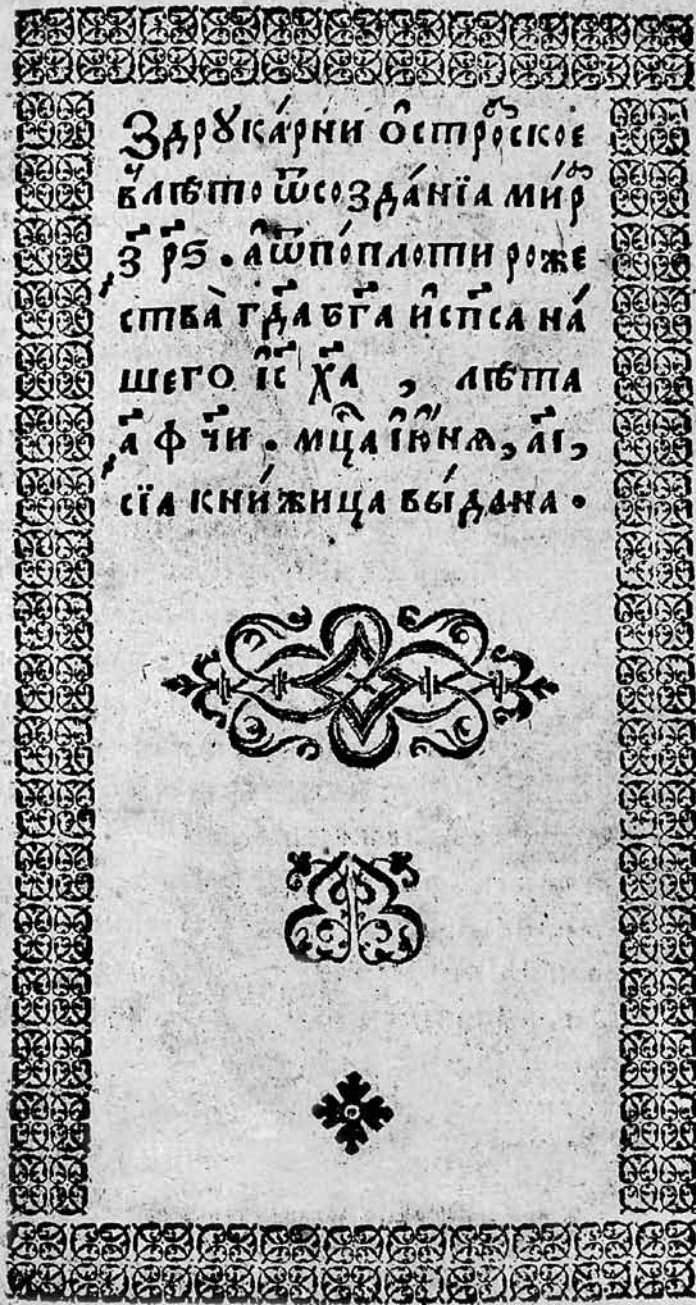 Здрꙋка́рни О҆стро́ⷤскоє
в̾лѣто ѿсозда́нїа ми́рꙋ
҂з҃ р҃ѕ . а҆ѿпо́плоти роже
ства̀ гд҃а бг҃а и҆сп҃са на́
шего і҆с҃ х҃а , лѣта
҂а҃ ф ч҃и . мц҃а і҆ю҆́нѧ, а҃і,
сїа кни́жица вы́дана .